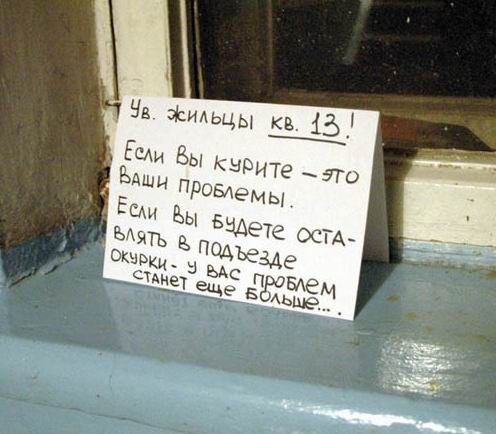 Ув. жильцы кв. 13!
Если Вы курите – это
Ваши проблемы.
Если Вы будете оста-
влять в подъезде
окурки - у вас проблем
станет еще больше....